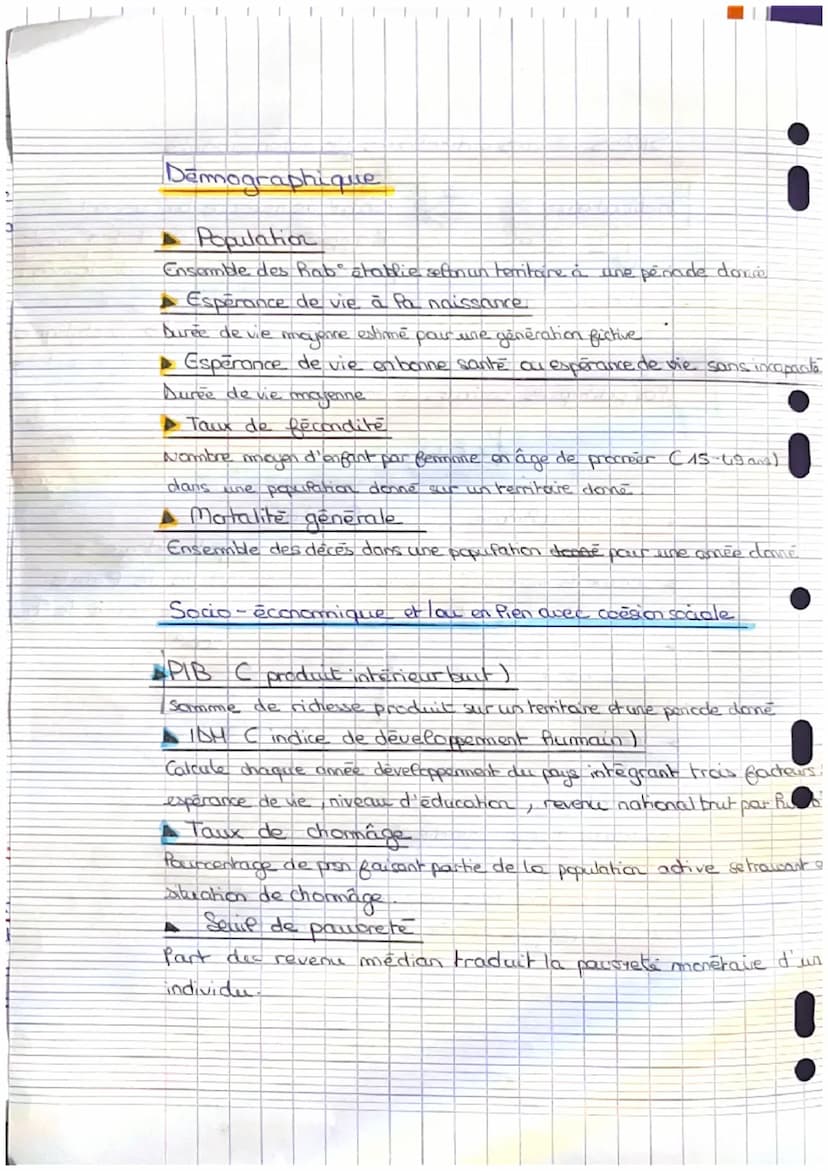 Démographique
Population
Ensemble des hab° établie selon un territoire à une période donné
Espérance de vie à la naissance
Durée de vie moyenne estimé pour une génération fictive
Espérance de vie en bonne santé ou espérance de vie sans incapacité
Durée de vie moyenne
Taux de fécondité
Nombre moyen d'enfant par femme en âge de procréer (15-49 ans)
dans une population donné sur un territoire donné
Mortalité générale
Ensemble des décès dans une population donné pour une année donné
Socio-économique et/ou en lien avec coésion sociale
PIB (produit intérieur but)
Somme de richesse produit sur un territoire et une periode donné
IDH (indice de développement humain)
Calcule chaque année développement du pays intégrant trois facteurs:
espérance de vie, niveau d'éducation, revenu national brut par
Taux de chomâge
Pourcentage de prsn faisant partie de la population active se trouvant
situation de chomâge.
Seuil de pauvreté
Part des revenu médian traduit la pauvreté monétaie d'un
individu.